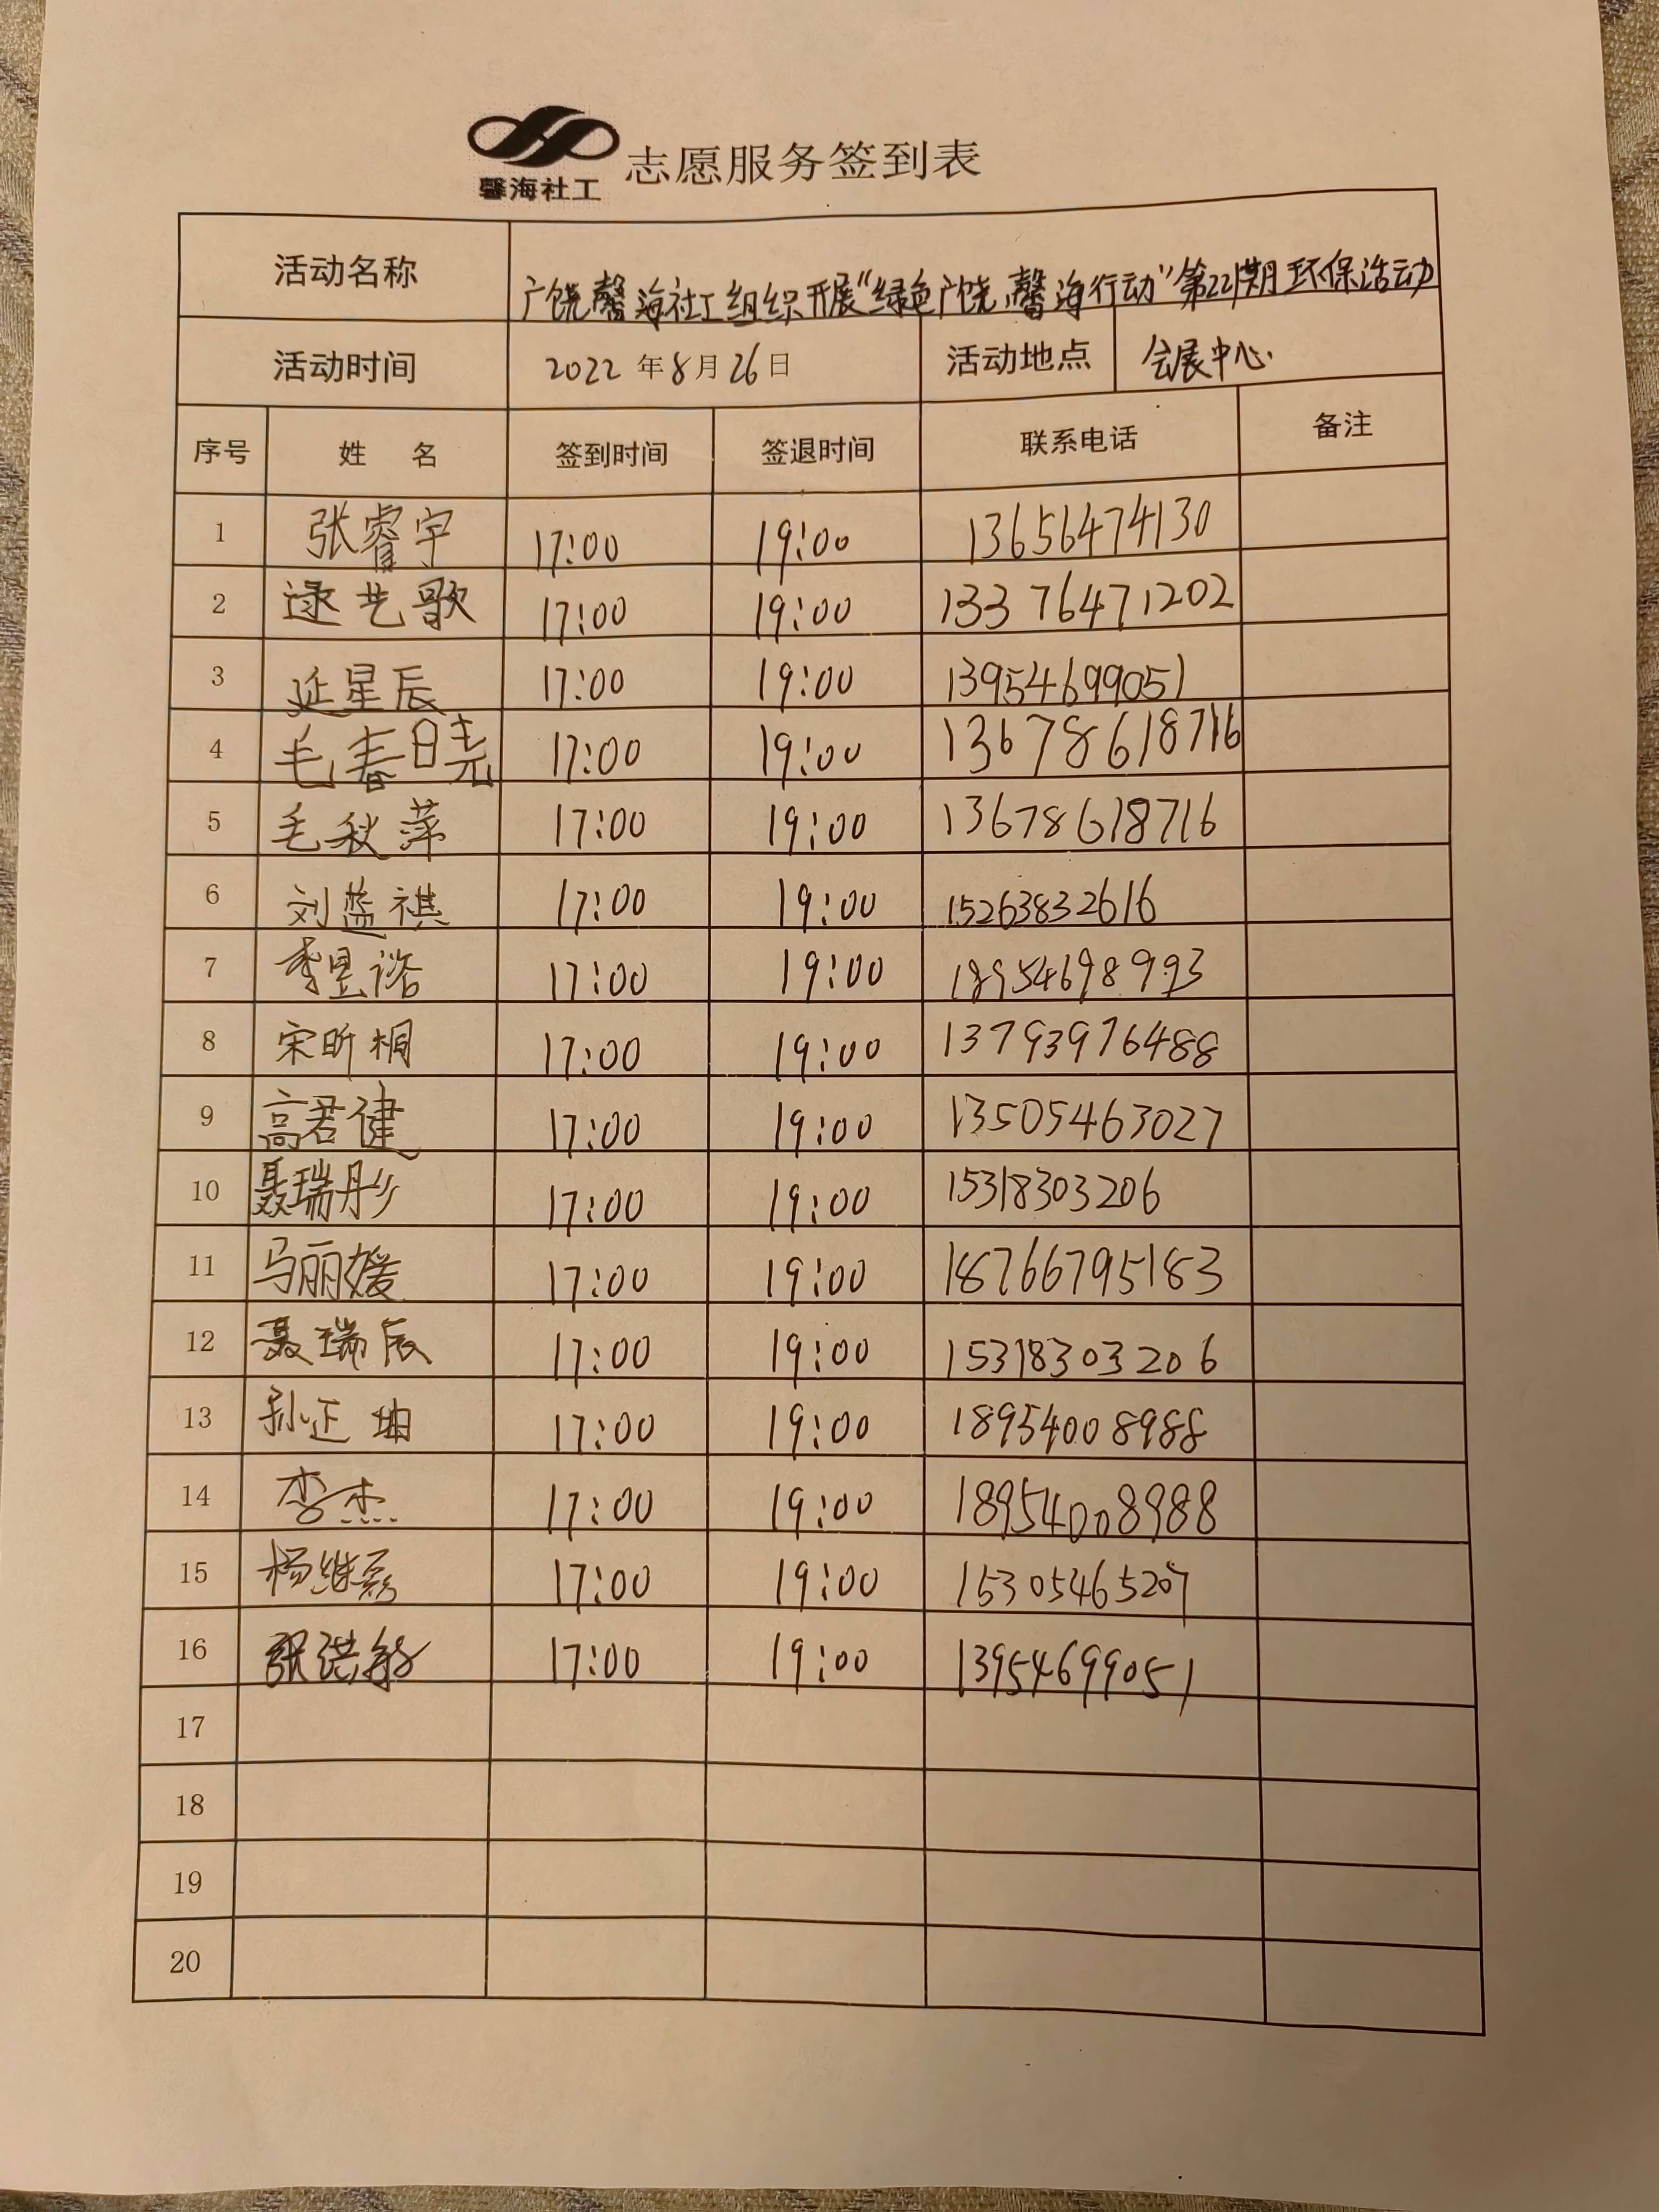 馨海社工 志愿服务签到表
活动名称 广饶馨海社工组织开展“绿色广饶,馨海行动”第221期环保活动
活动时间 2022年8月26日 活动地点 会展中心
序号 姓 名 签到时间 签退时间 联系电话 备注
1 张睿宇 17:00 19:00 13656474130
2 逯艺歌 17:00 19:00 13376471202
3 延星辰 17:00 19:00 13954699051
4 毛春晓 17:00 19:00 13678618716
5 毛秋萍 17:00 19:00 13678618716
6 刘蓝祺 17:00 19:00 15263832616
7 李昱谘 17:00 19:00 18954698993
8 宋昕桐 17:00 19:00 13793976488
9 高君健 17:00 19:00 13505463027
10 聂瑞彤 17:00 19:00 15318303206
11 马丽媛 17:00 19:00 18766795183
12 聂瑞辰 17:00 19:00 15318303206
13 孙正坤 17:00 19:00 18954008988
14 李杰 17:00 19:00 18954008988
15 杨继磊 17:00 19:00 15305465207
16 张洪敏 17:00 19:00 13954699051
17
18
19
20